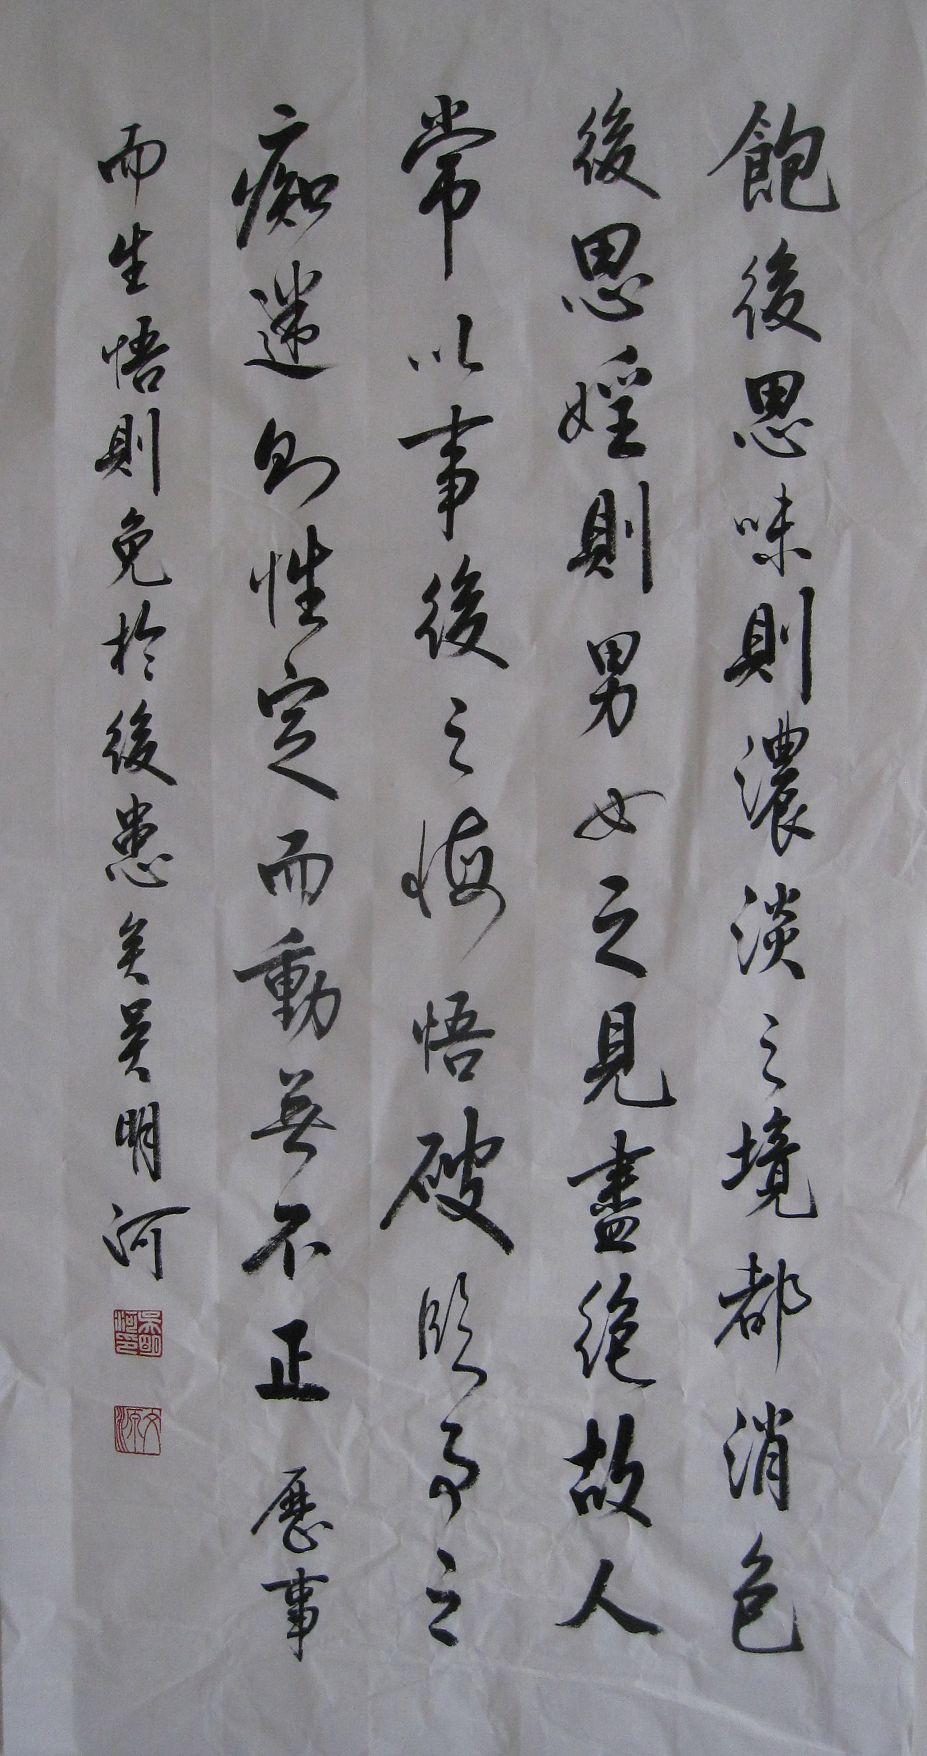 飽後思味則濃淡之境都消色
後思婬則男女之見盡絶故人
常以事後之悔悟破臨事之
痴迷則性定而動無不正 歷事
而生悟則免於後患矣吳明河
吳明河印
文源